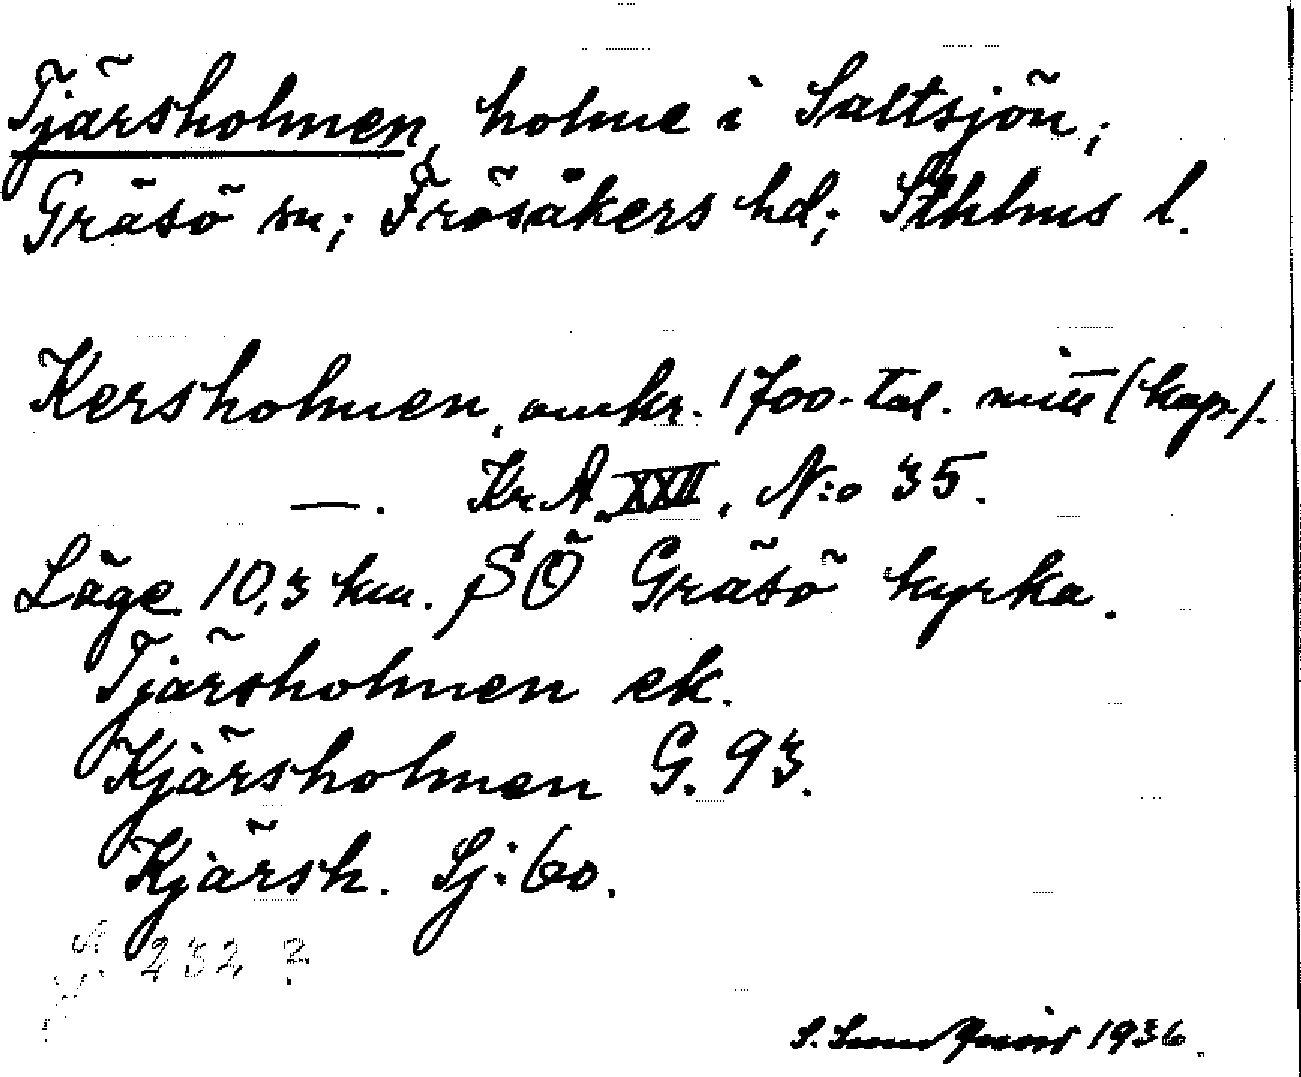 Tjärsholmen, holme i Saltsjön;
Gräsö sn; Frösåkers hd; Sthlms l.
Kersholmen, omkr. 1700-tal. mitt (kap.).
—. Kr.A. XXII, N:o 35.
Läge 10,3 km. SÖ Gräsö kyrka.
Tjärsholmen ek.
Kjärsholmen G. 93.
Kjärsh. Sj: 60.
232 ?
S. 1936.